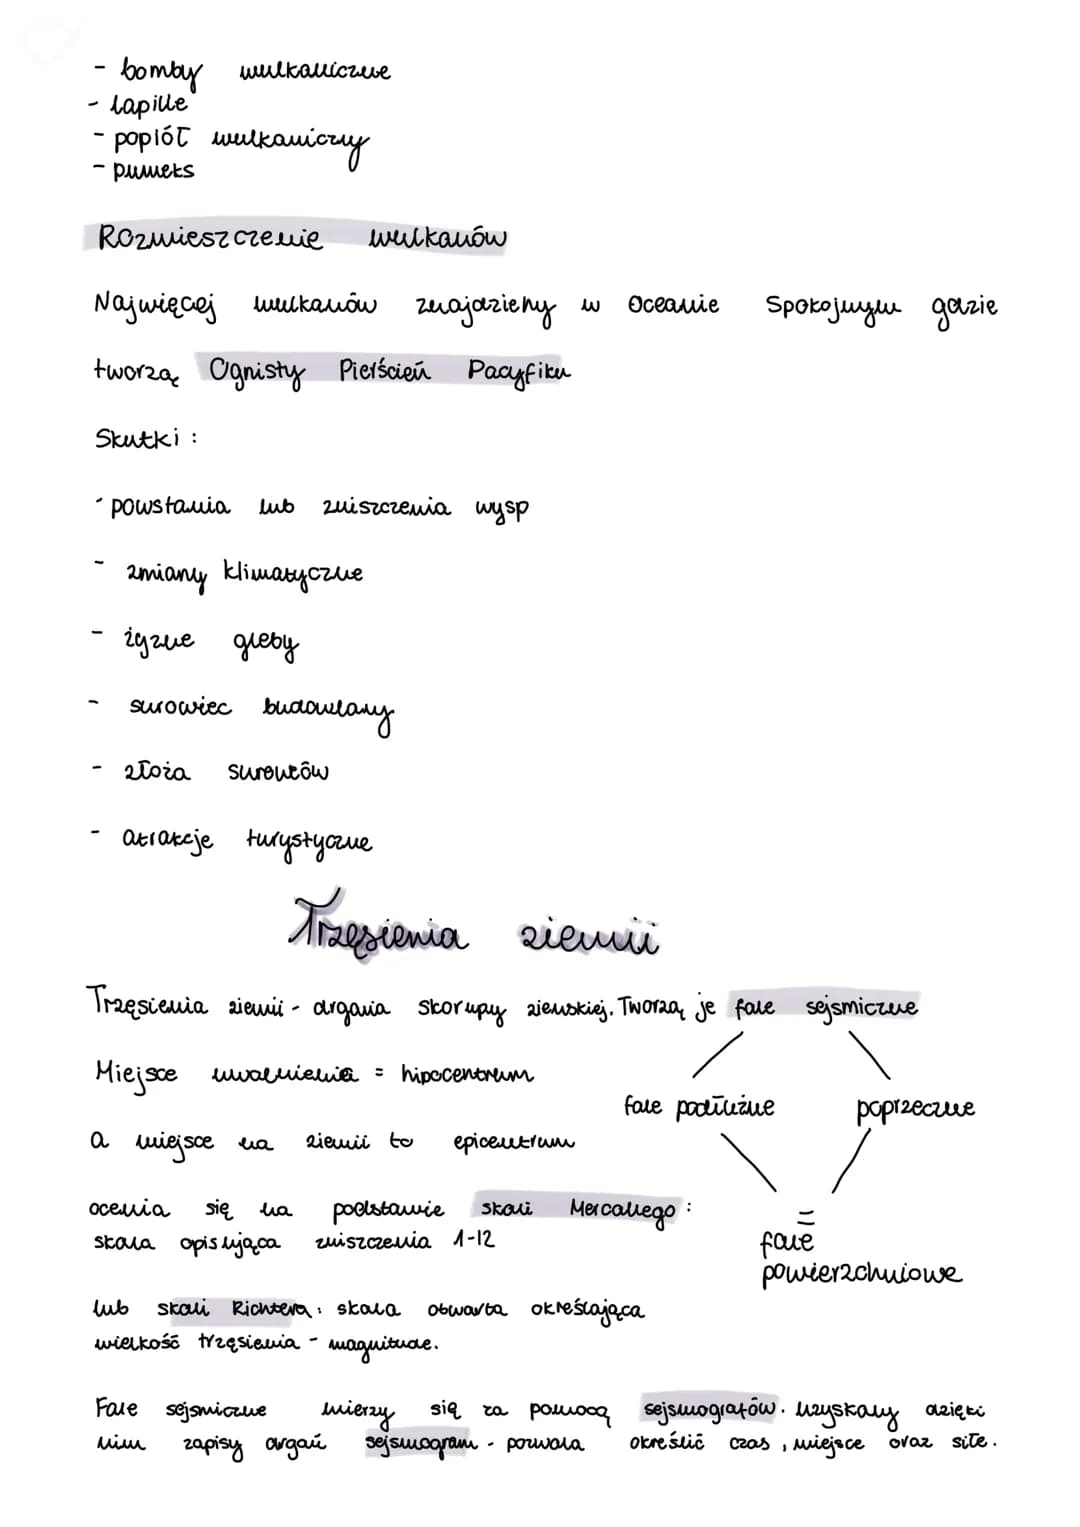 - bomby wulkaniczne
- lapille
- popiół wulkaniczny
- pumeks
Rozmieszczenie wulkanów
Najwięcej wulkanów znajdziemy w Oceanie Spokojnym gdzie
tworzą Ognisty Pierścień Pacyfiku
Skutki :
- powstania lub zniszczenia wysp
- zmiany klimatyczne
- żyzne gleby
- surowiec budowlany
- złoża surowców
- atrakcje turystyczne
Trzęsienia ziemii
Trzęsienia ziemii - drgania skorupy ziemskiej. Tworzą je fale sejsmiczne
Miejsce uwolnienia = hipocentrum
fale podłużne poprzeczne
a miejsce na ziemii to epicentrum
ocenia się na podstawie skali Mercallego :
skala opisująca zniszczenia 1-12
=
fale
powierzchniowe
lub skali Richtera : skala otwarta określająca
wielkość trzęsienia - magnitude.
Fale sejsmiczne mierzy się za pomocą sejsmografów. Uzyskany dzięki
nim zapisy drgań sejsmogram - pozwala określić czas , miejsce oraz siłe.